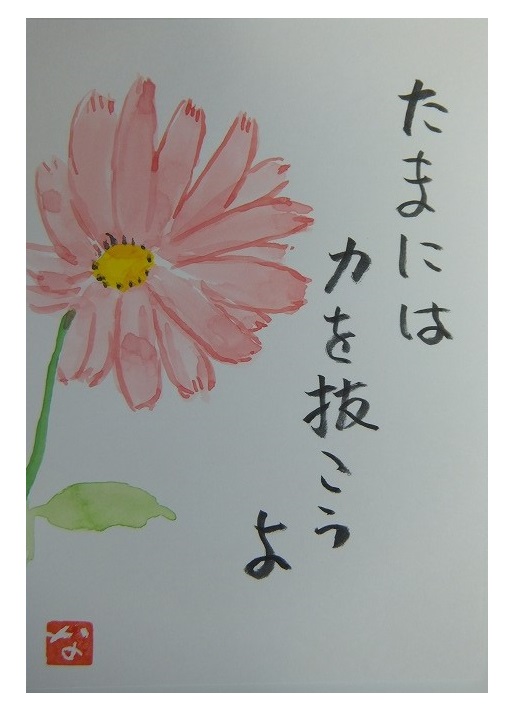 たまには
力を抜こう
よ
な